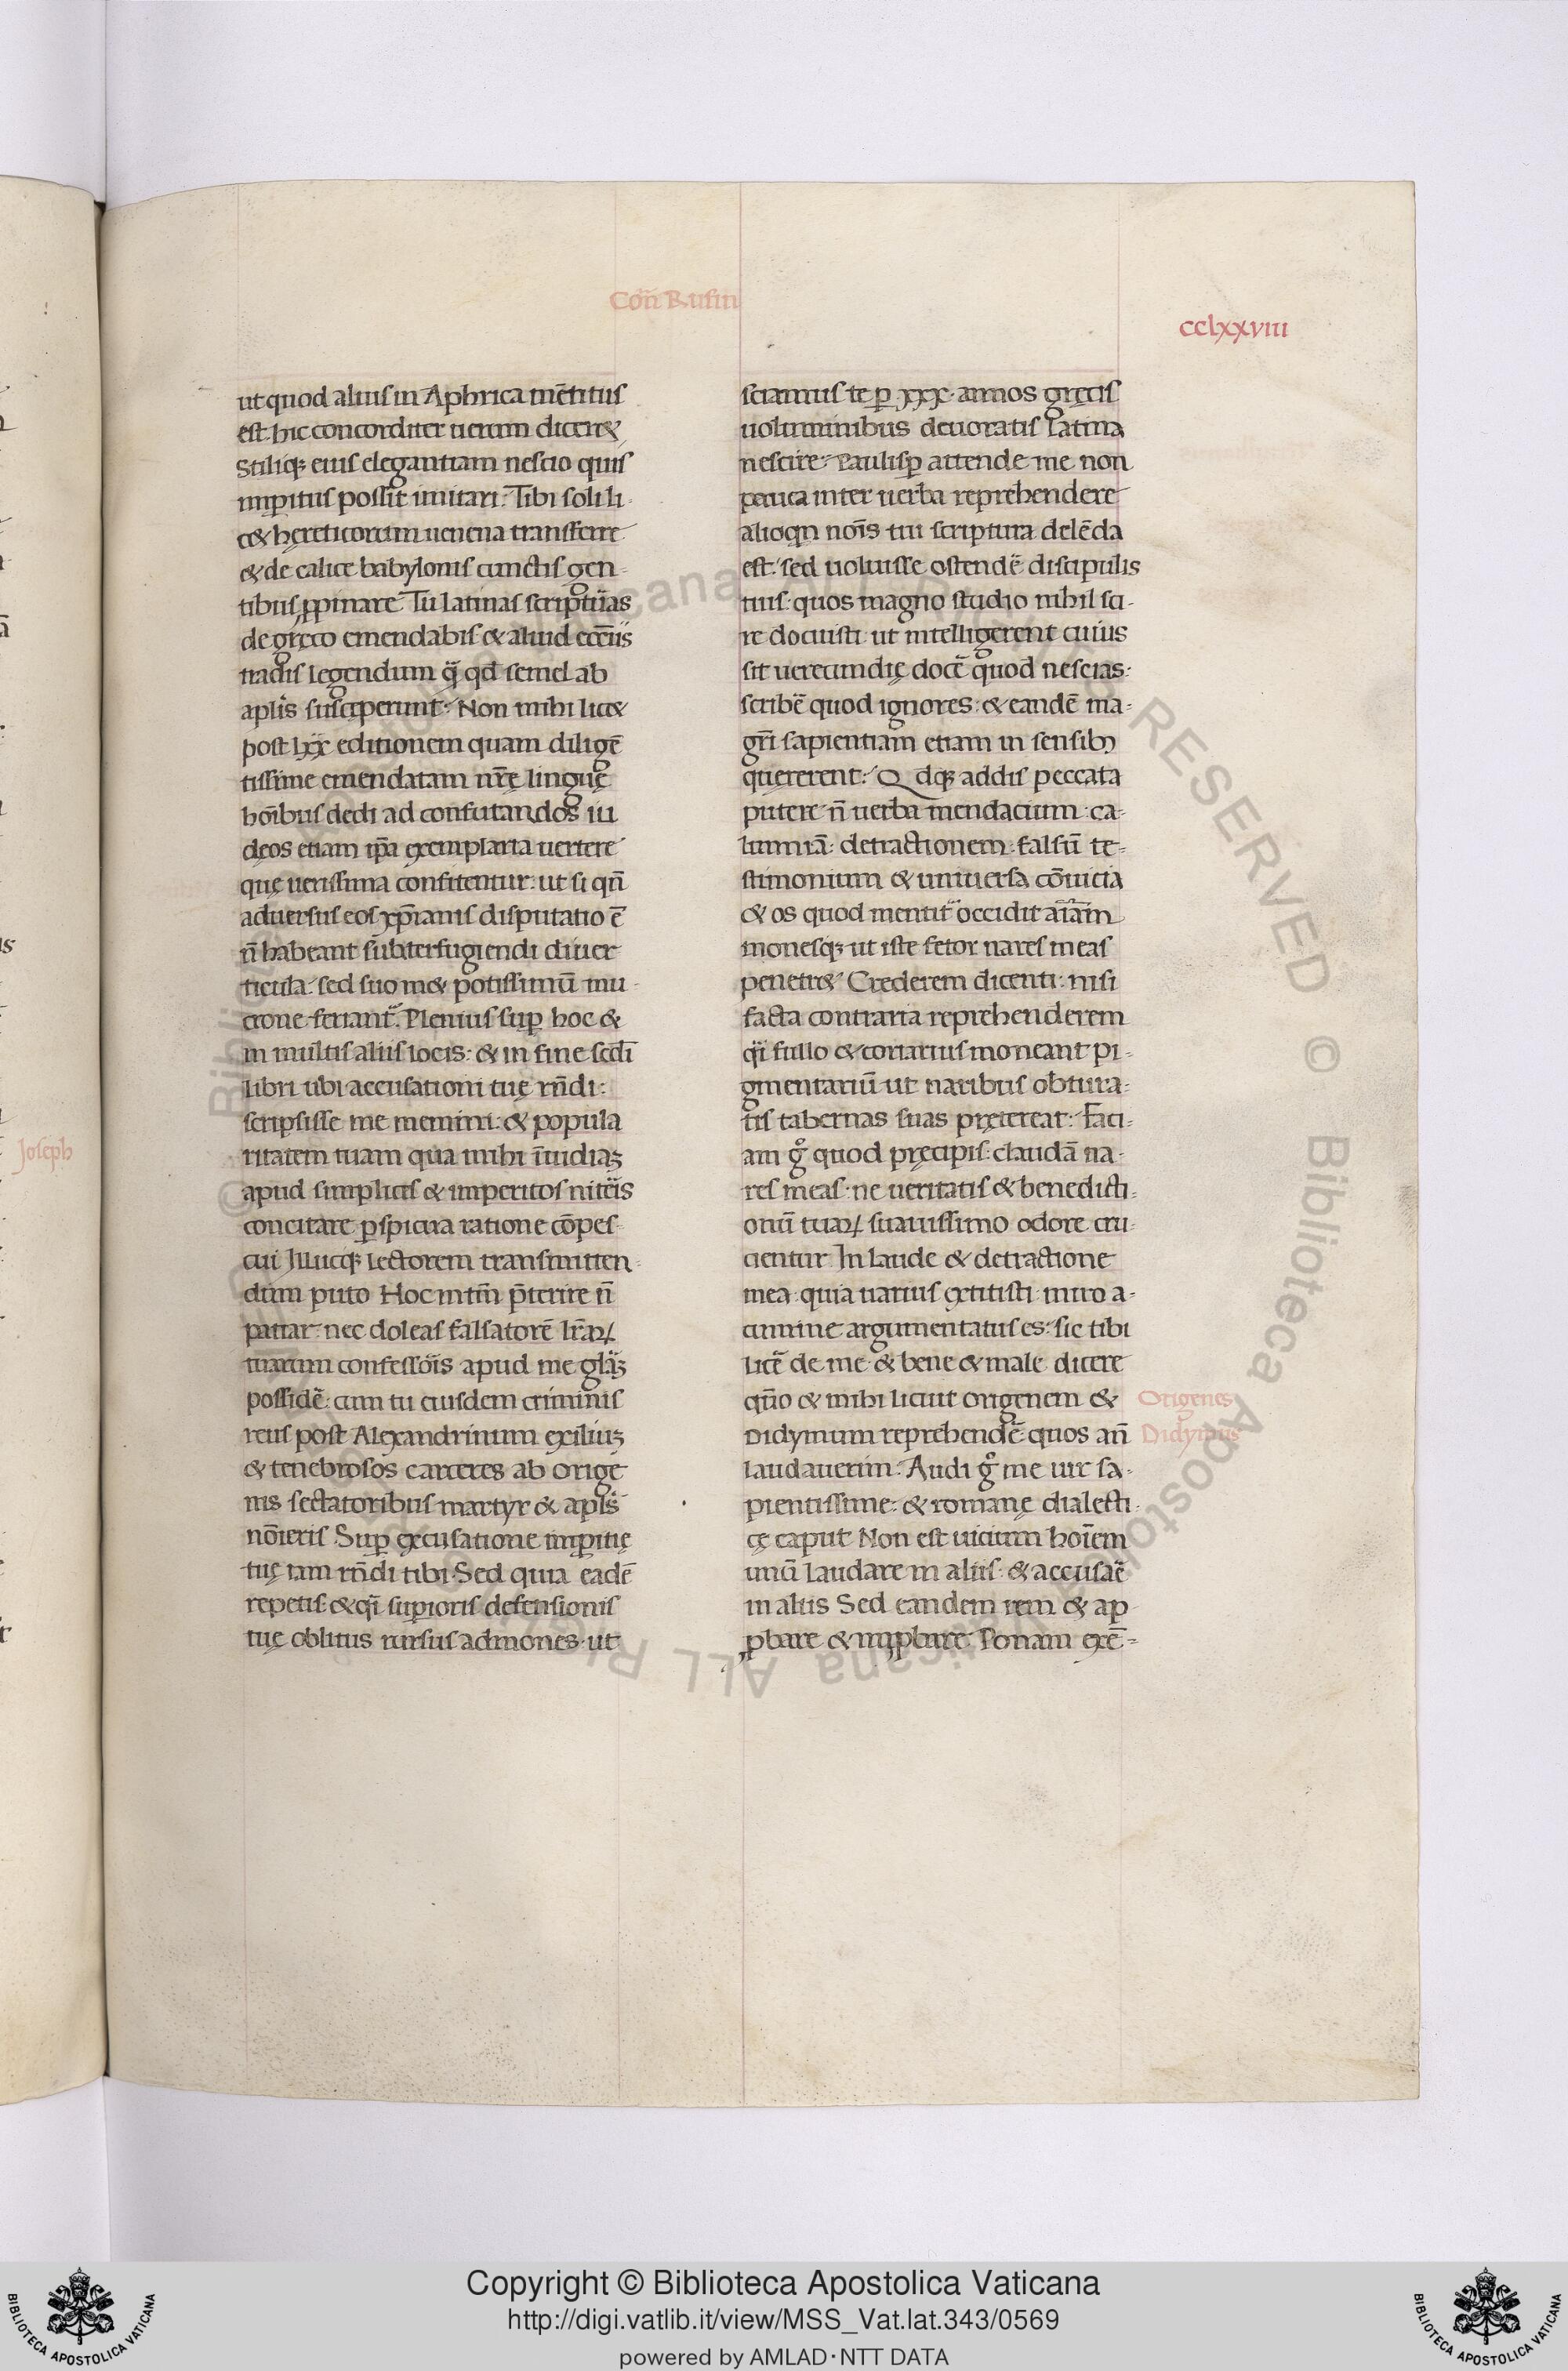 Con̄ Rufin
cclxxviii
ut quod alius in Aphrica mētitus
est. hic concorditer uerum dicer&
Stiliq; eius elegantiam nescio quis
imꝑitus possit imitari. Tibi soli li-
c& hęreticorum uenena transferre
& de calice babylonis cunctis gen-
tibus ꝓpinare Tu latinas scripturas
de gręco emendabis & aliud eccīis
tradis legendum q̄ qd̄ semel ab
apl̄is susceperunt. Non mihi lic&
post lxx editionem quam diligē
tissime emendatam nr̄ę linguę
hoībus dedi ad confutandos iu
dęos etiam ip̄a exemplaria uertere
quę uerissima confitentur. ut si qn̄
aduersus eos xp̄ianis disputatio ē
n̄ habeant subterfugiendi diuer
ticula. sed suo m& potissimū mu-
crone feriant̄. Plenius suꝑ hoc &
in multis aliis locis. & in fine scdī
libri ubi accusationi tuę rn̄di.
scripsisse me memini. & popula
ritatem tuam qua mihi īuidiaꝫ
apud simplices & imperitos niteris
concitare ꝑspicua ratione cōpes-
cui Illucq; lectorem transmitten-
dum puto Hoc intm̄ p̄terire n̄
patiar. nec doleas falsatorē lr̄aꝝ
tuarum confessoīs apud me gl̄aꝫ
possidē. cum tu eiusdem criminis
reus post Alexandrinum exiliuꝫ
& tenebrosos carceres ab orige
nis sectatoribus martyr & apl̄s
nōieris Suꝑ excusatione imꝑitię
tuę iam rn̄di tibi. Sed quia eadē
repetis. & qī suꝑioris defensionis
tuę oblitus rursus admones. ut
sciamus te ꝑ xxx. annos gręcis
uoluminibus deuoratis latina
nescire. Paulisꝑ attende me non
pauca inter uerba reprehendere
alioqn nōis tui scriptura delēda
est. sed uoluisse ostendē discipulis
tuis. quos magno studio nihil sci-
re docuisti. ut intelligerent cuius
sit uerecundię docē quod nescias.
scribē quod ignores. & eandē ma-
gr̄i sapientiam etiam in sensibꝫ
quęrerent. Q dq; addis peccata
putere n̄ uerba mendacium. ca-
lumniā. detractionem. falsū te-
stimonium & uniuersa cōuicia
& os quod mentit̄ occidit aīam
monesq; ut iste fetor nares meas
penetr& Crederem dicenti. nisi
facta contraria reprehenderem
qī fullo & coriarius moneant pi-
gmentariū ut naribus obtura-
tis tabernas suas pręтereat. Faci-
am gͦ quod pręcipis. claudā na-
res meas. ne ueritatis & benedicti-
onū tuaꝝ suauissimo odore cru-
cientur In laude & detractione
mea. quia uarius extitisti. miro a-
cumine argumentatus es. sic tibi
licē de me & bene & male dicere
qūo & mihi licuit origenem &
Didymum reprehendē. quos an̄
laudauerim. Audi gͦ me uir sa-
pientissime. & romanę dialecti-
cę caput Non est uicium hoīem
unū laudare in aliis. & accusaē
in aliis Sed eandem rem & ap
ꝓbare & imꝓbare Ponam exē-
Origenes
Didymus
Joseph
Copyright © Biblioteca Apostolica Vaticana
http://digi.vatlib.it/view/MSS_Vat.lat.343/0569
powered by AMLAD·NTT DATA
BIBLIOTECA APOSTOLICA VATICANA
BIBLIOTECA APOSTOLICA VATICANA